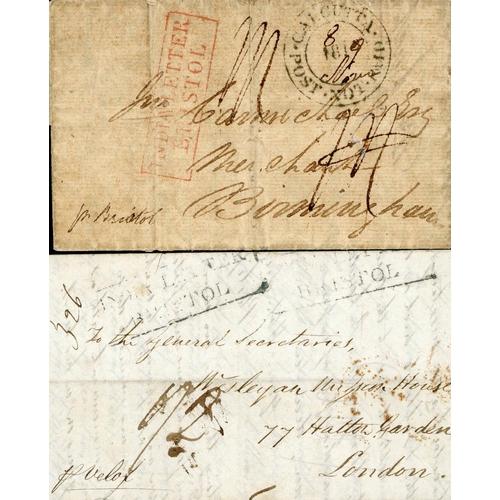 INDIA LETTER
BRISTOL
CALCUTTA
POST NOT PAID
8 9
Nov
Jno Carmichael Esq
Merchant
Birmingham
pr Bristol
326
INDIA LETTER
BRISTOL
BRISTOL
To the general Secretaries,
Wesleyan Mission House
77 Hatton Garden
London.
pr Velox